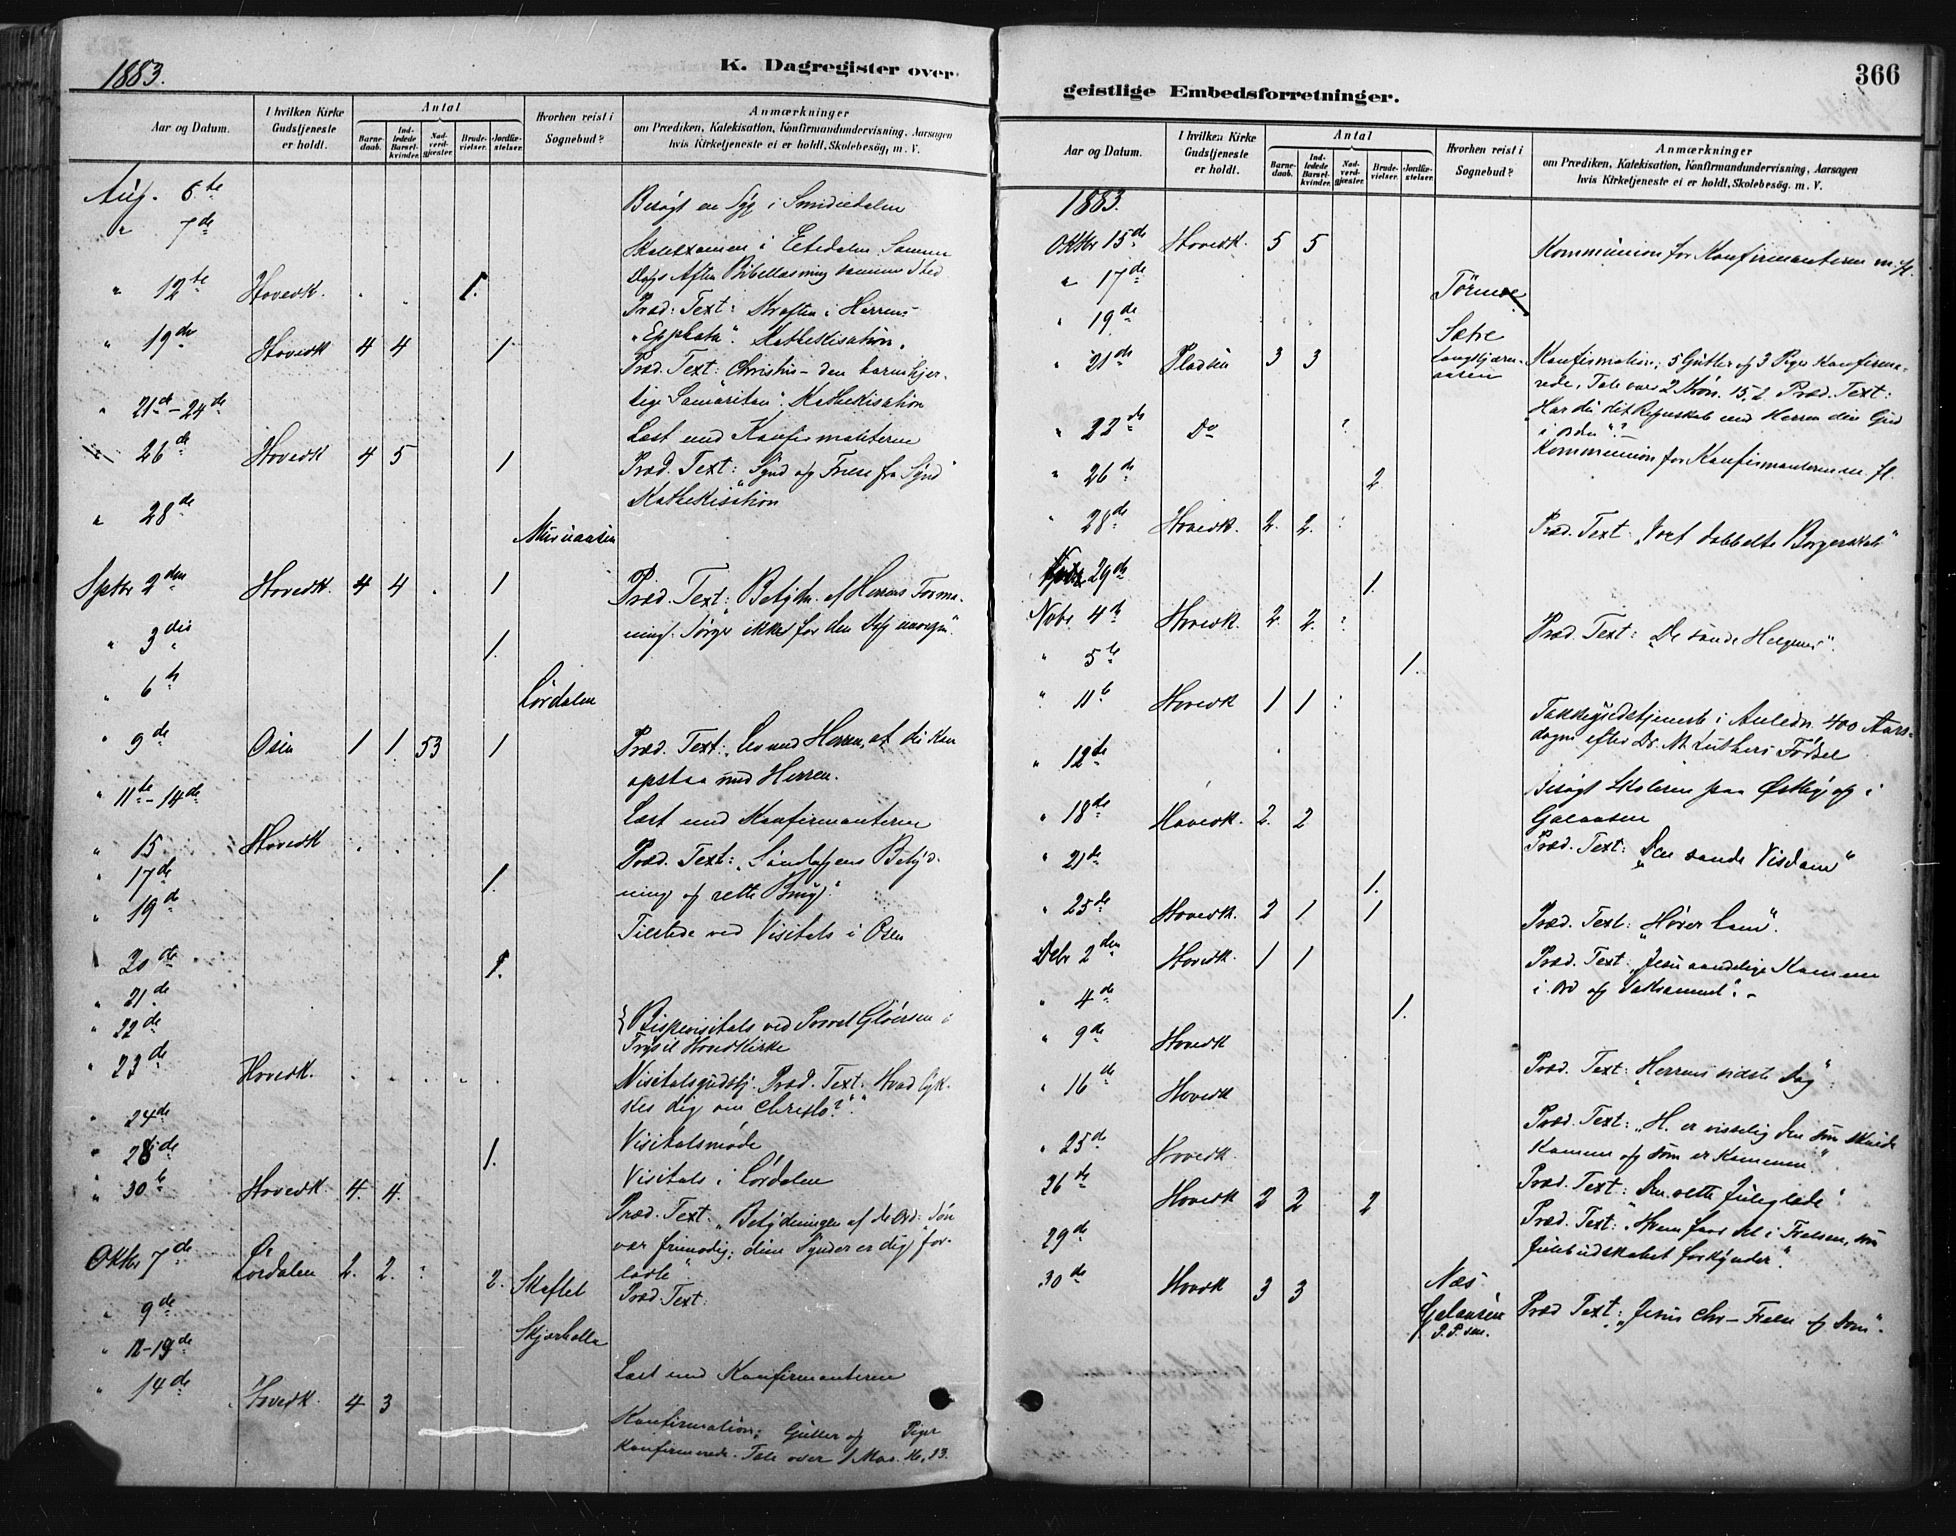 1883.
K. Dagregister over
Aar og Datum.
I hvilken Kirke Gudstjeneste er holdt.
Antal
Barnedaab.
Indledede Barselkvinder.
Nadverdgjester.
Brudevielser.
Jordfæstelser.
Hvorhen reist i Sognebud?
Anmærkninger
om Prædiken, Katekisation, Konfirmandundervisning, Aarsagen
hvis Kirketjeneste ei er holdt, Skolebesög, m. V.
Aug. 6te Besøgt en Syg i
" 7de Skoleexamen i Samme
Dags Aften Bibellæsning samme Sted
" 12te Hovedk. . . 1. Præd. Text: Kraften i Herrens
"Epphata". Kathekisation.
" 19de Hovedk 4 4 1 Præd. Text: Christus – den barmhjer-
tige Samaritan". Kathekisation
" 21de – 24de Læst med Konfirmanterne
" 26de Hovedk 4 5 1 Præd. Text: "Synd og Friere fra Synd"
Kathekisation
" 28de
Sptbr 2den Hovedk. 4 4 . 1 Præd. Text: "Betydn. af Herrens Forma-
ning: Sørger ikke for den Dag imorgen".
" 3die 1.
" 6te Lördalen
" 9de Osen 1 1. 53 1 Præd. Text: Lev med Herren, at du kan
opstaa med Herren.
" 11te – 14de Læst med Konfirmanterne
" 15 Hovedk . . Præd. Text: "Söndagens Betyd-
" 17de 1. ning og rette Brug".
" 19de Tilstede ved Visitats i Osen
" 20de 1.
" 21de
" 22de Bispevisitats ved Provst Glöersen i
Trysil Hovedkirke
" 23de Hovedk. . . . . . Visitatsgudstj. Præd. Text: Hvad tyk-
kes dig om Christo?"
" 24de Visitatsmöde
" 28de 1. Visitats i Lördalen
" 30te Hovedk 4. 4. Præd. Text: "Betydningen af de Ord: Sön
vær frimodig; dine Synder er dig for-
ladte".
Oktbr 7de Lördalen 2. 2. . 2. Skaftet Præd. Text:
" 9de
" 12–13de Læst med Konfirmanterne
" 14de Hovedk. 4 3 Konfirmation; Gutter og Piger
konfirmerede. Tale over 1 Mos. 16, 13.
366
geistlige Embedsforretninger.
Aar og Datum.
I hvilken Kirke Gudstjeneste er holdt.
Antal
Barnedaab.
Indledede Barselkvinder.
Nadverdgjester.
Brudevielser.
Jordfæstelser.
Hvorhen reist i Sognebud?
Anmærkninger
om Prædiken, Katekisation, Konfirmandundervisning, Aarsagen
hvis Kirketjeneste ei er holdt, Skolebesög. m. V.
1883.
Oktbr 15de Hovedk. 5 5 Kommunion for Konfirmanterne m. fl.
" 17de Törmoe
" 19de Sætre
" 21de Pladsen 3 3 Konfirmation; 5 Gutter og 3 Piger konfirme-
rede. Tale over 2 Krön. 15, 2. Præd. Text:
Har du dit Regnskab med Herren din Gud
i Orden"?
" 22de Do Kommunion for Konfirmanterne m. fl.
" 26de 2
" 28de Hovedk. 2. 2. Præd. Text: "Vort dobbelte Borgerskab"
29de 1.
Nvbr. 4de Hovedk. 2. 2. Præd. Text: "De sande Helgener".
" 5te 1.
" 11te Hovedk 1 1 Takkegudstjeneste i Anledn. 400 Aars-
dagen efter Dr. M. Luthers Födsel
" 12te Besøgt Skolerne paa Østby og i
Galaasen
" 18de Hovedk. 2. 2 Præd. Text: "Den sande Visdom"
" 21de 1.
" 25de Hovedk. 2 1 1 Præd. Text: "Hører Ham".
Debr 2den Hovedk. 1 1 Præd. Text: "Jesu aandelige Komme
i Ord og Sakrament". –
" 4de 1.
" 9de Hovedk Præd. Text: "Herrens sidste Dag"
" 16de Hovedk Præd. Text: "H. er visselig den som skulde
komme og som er kommen".
" 25de Hovedk. Præd. Text: "Den rette Juleglæde"
26de Hovedk 2 2 2 Præd. Text: "Hvem faar del i Frelsen, som
Julebudskabet forkynder".
29de Næs
30de Hovedk 3 3 Galaasen Præd. Text: "Jesus Chr – Frelse og Dom".